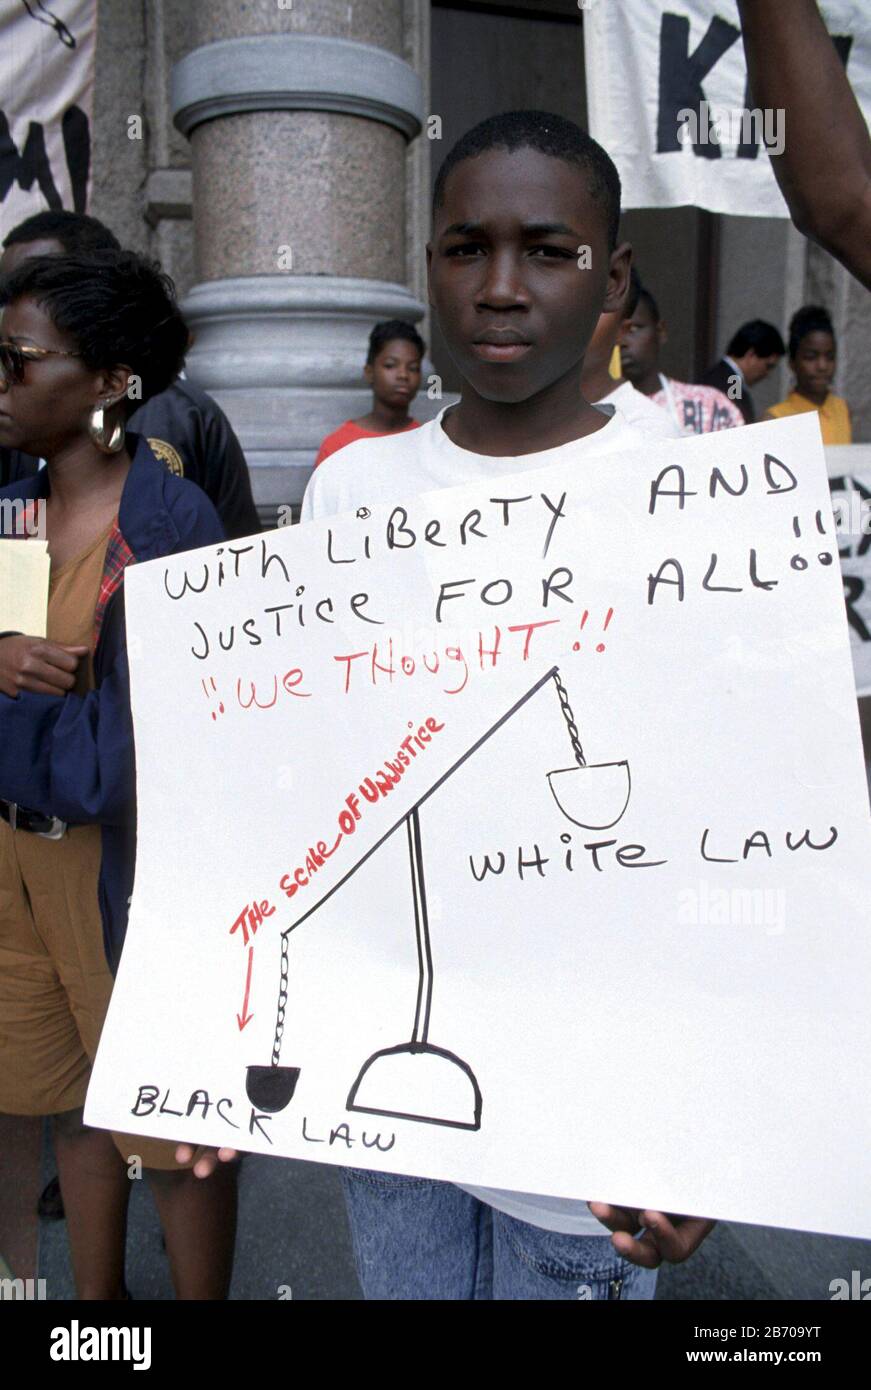 MI
KI
BLA
With LiBeRTY AND
JUSTiCe FOR ALL!!
!!We THOUGHT!!
THe SCALe OF UNJUSTiCe
WHiTe LAW
BLACK LAW
alamy
alamy
Image ID: 2B709YT
www.alamy.com